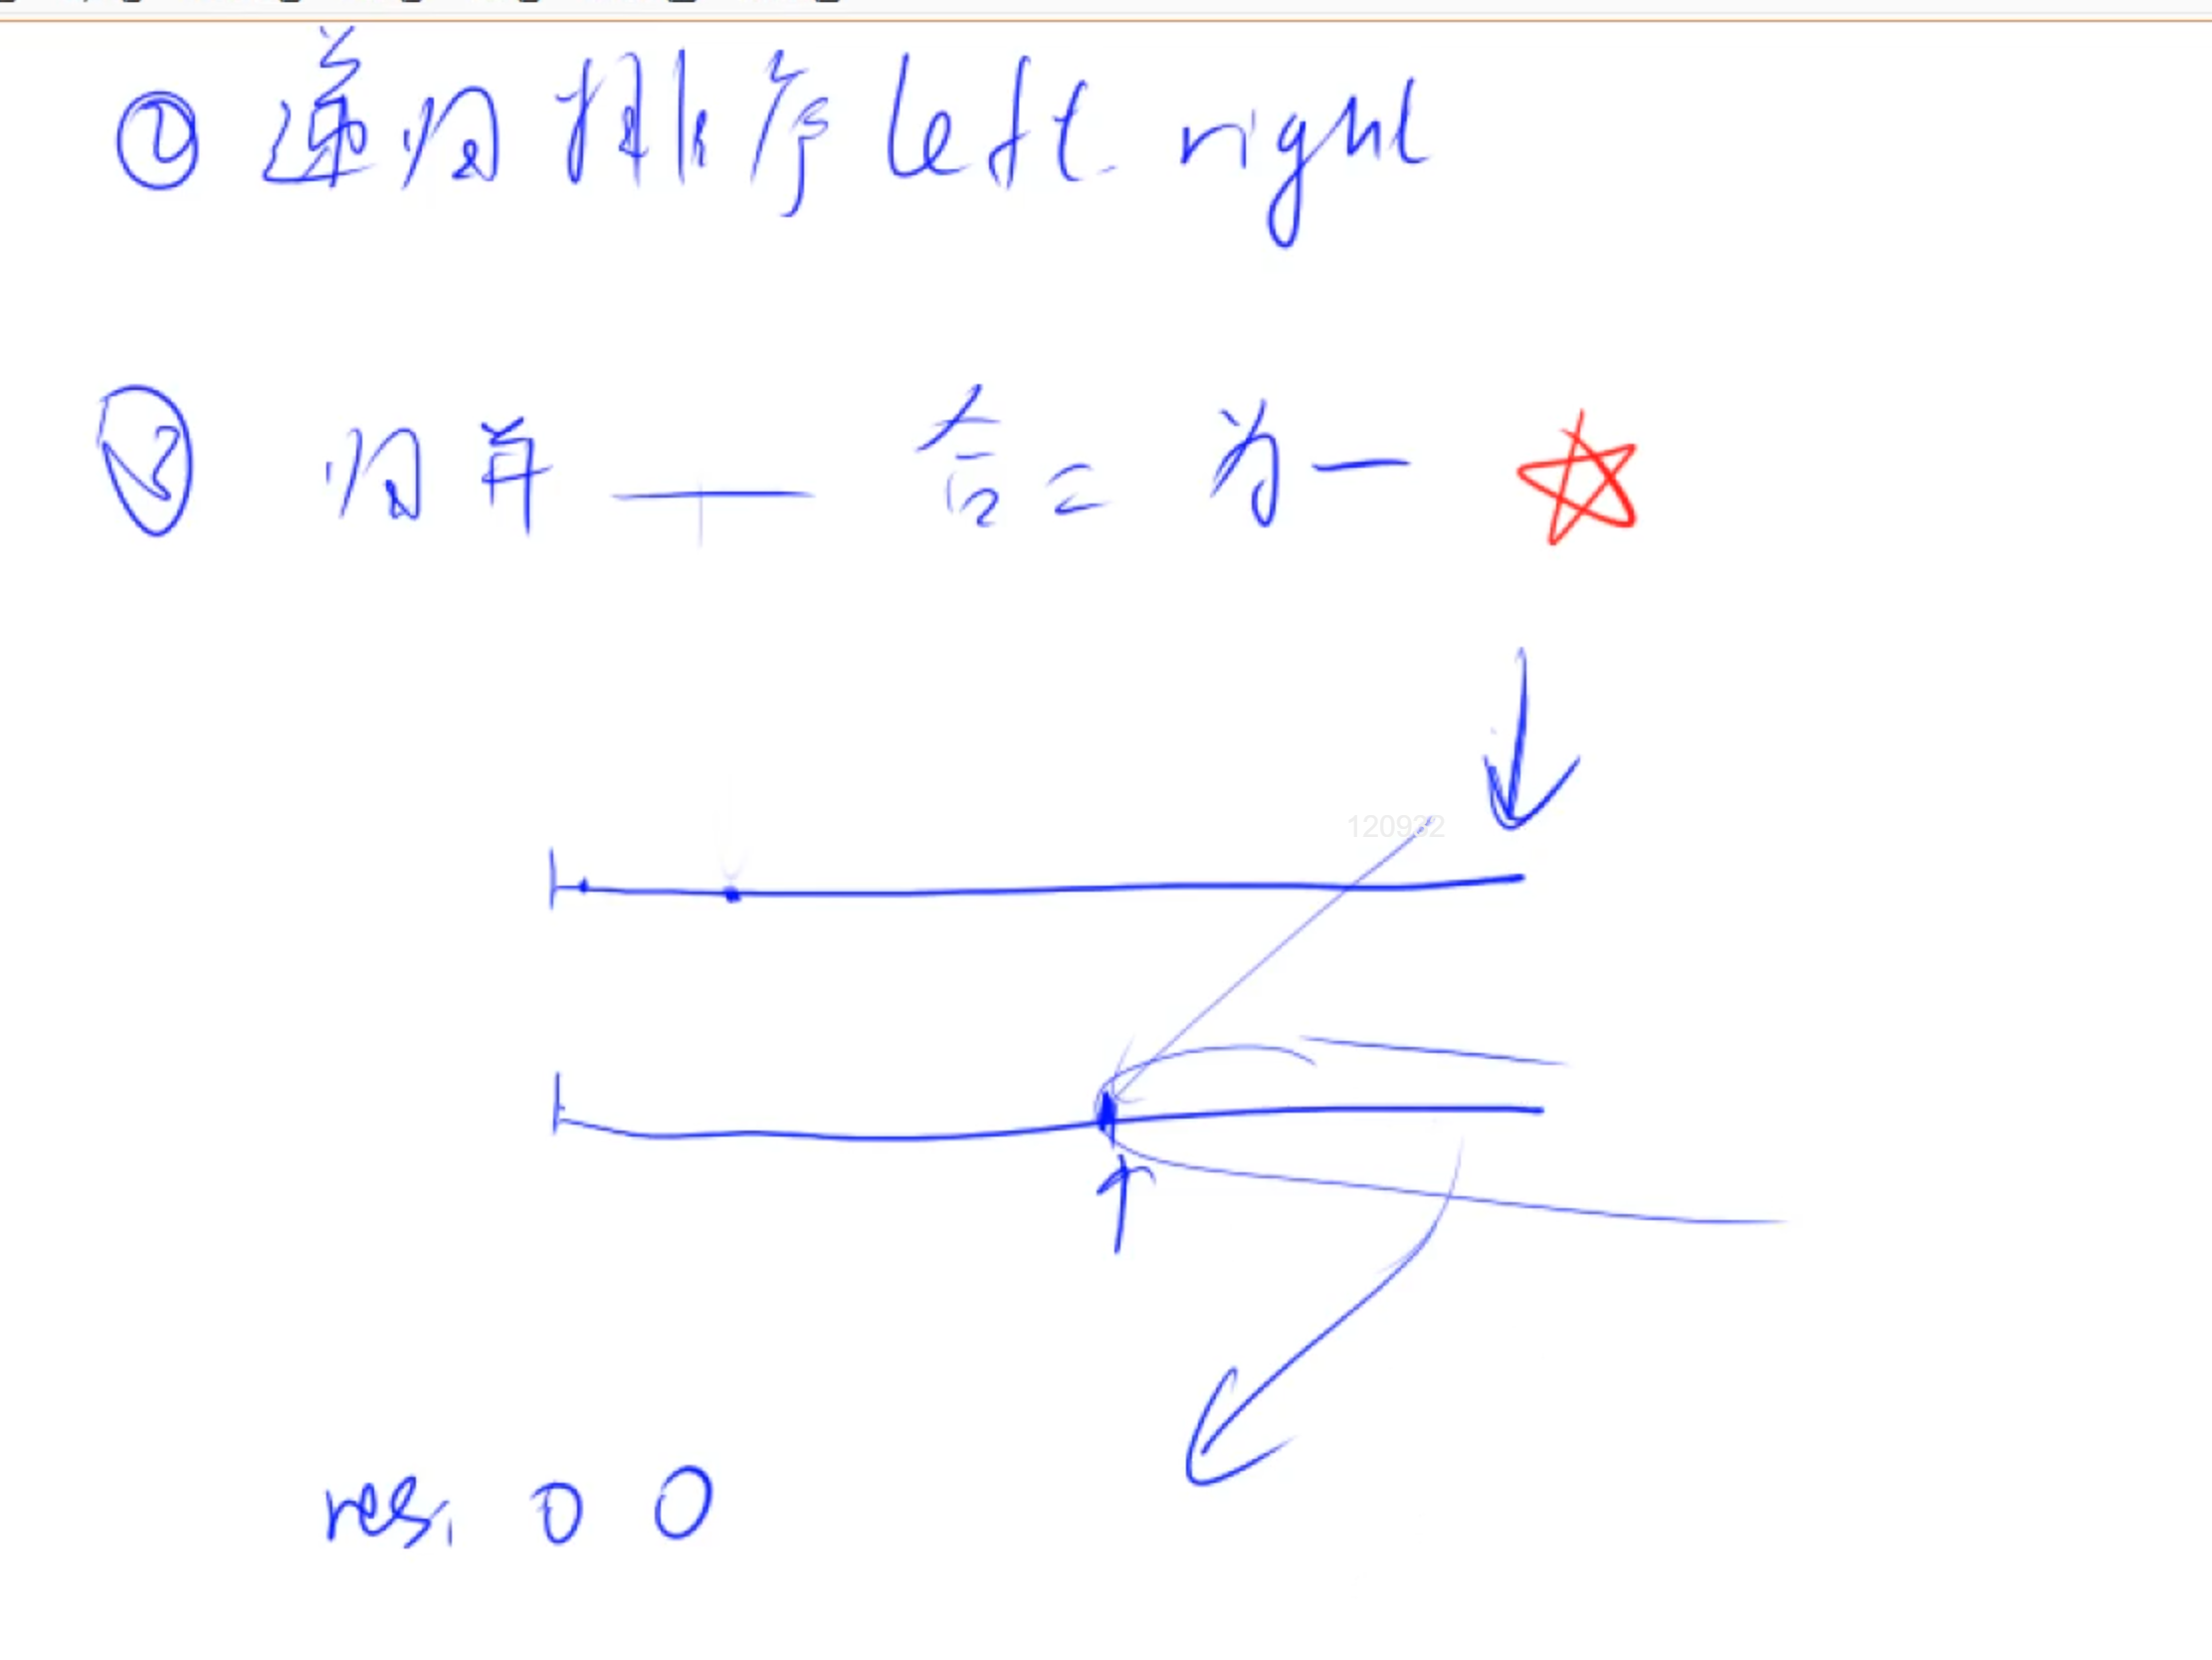 ② 递归排序 left right
③ 归并 — 合二为一 ☆
120932
res, 0 0